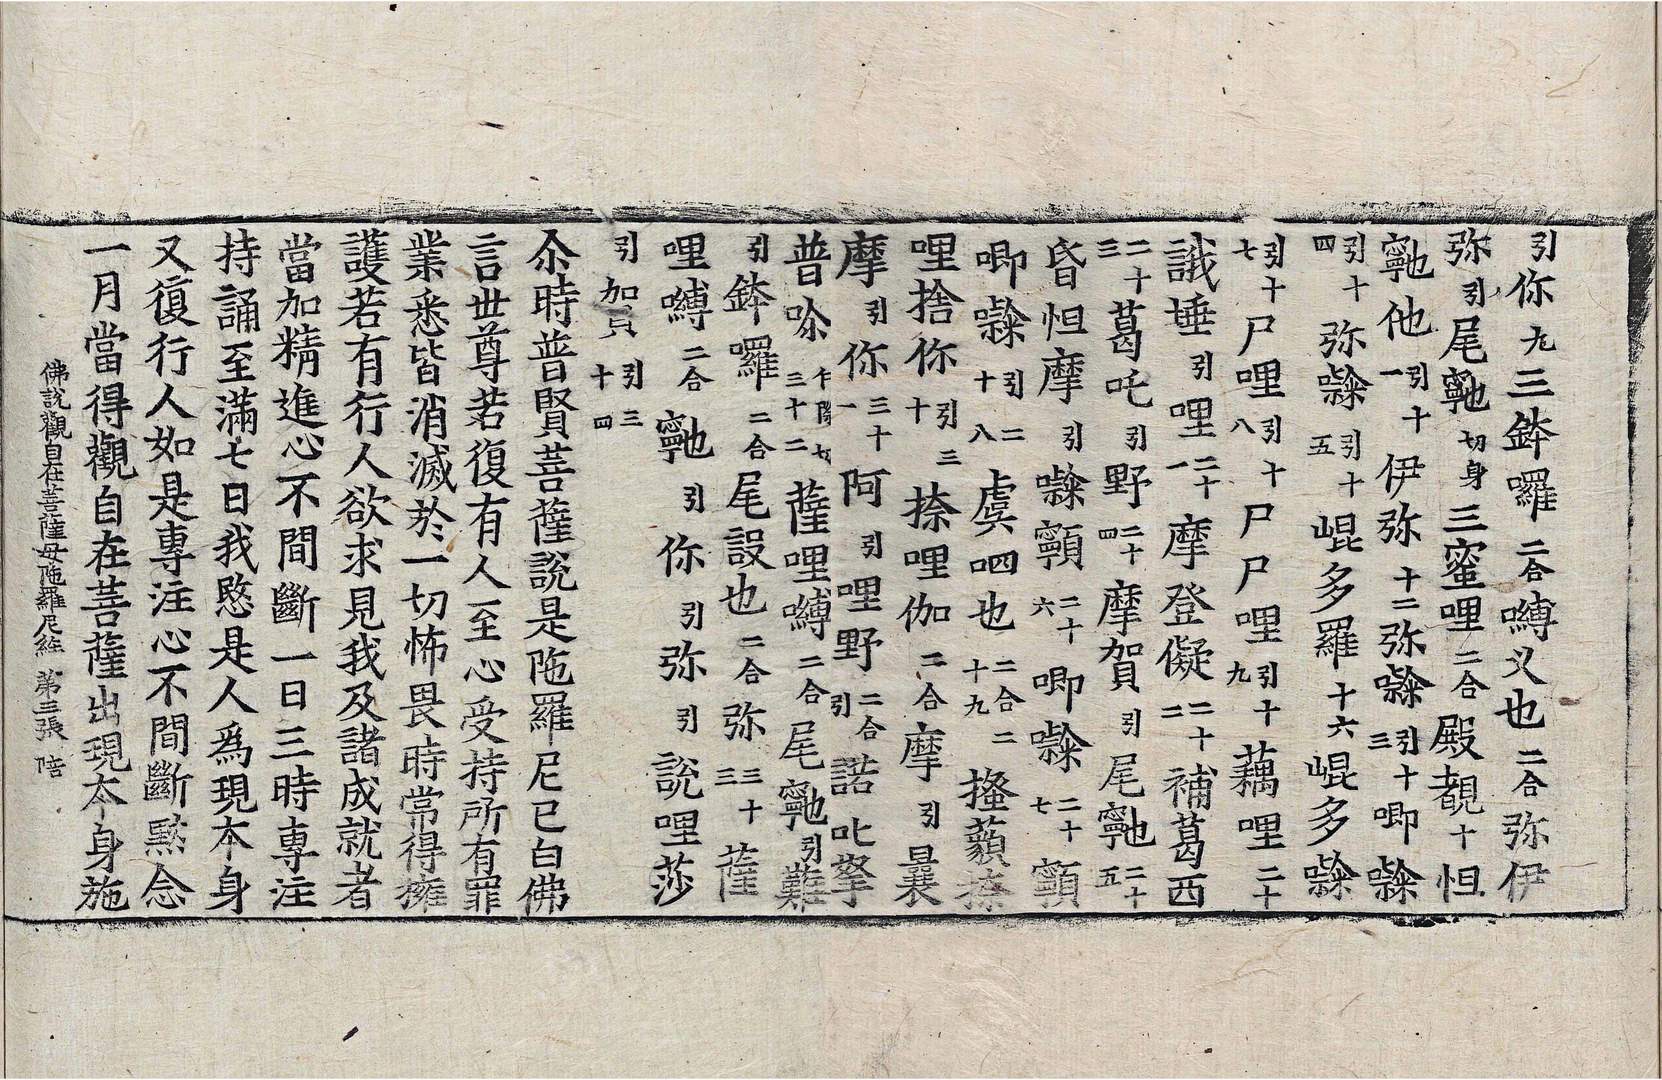 引你九三鉢囉二合嚩义也二合弥伊
弥引尾𪘨切身三蜜哩二合殿覩十怛
𪘨他引十一伊弥十二弥㘑引十三唧㘑
引十四弥㘑引十五崐多羅十六崐多㘑
引十七尸哩引十八尸尸哩引十九藕哩二十
誐埵引哩二十一摩登儗二十二補葛西
二十三葛吒引野二十四摩賀引尾𪘨二十五
昏怛摩引㘑顐二十六唧㘑二十七顐
唧㘑引二十八虞呬也二合二十九搔藙捺
哩捨你引三十捺哩伽二合摩引曩
摩引你三十一阿引哩野二合引諾叱拏
普唅三十二薩哩嚩二合尾𪘨引難
引鉢囉二合尾設也二合弥三十三薩
哩嚩二合𪘨引你引弥引說哩莎
引賀引三十四
尒時普賢菩薩說是陁羅尼已白佛
言世尊若復有人至心受持所有罪
業悉皆消滅於一切怖畏時常得擁
護若有行人欲求見我及諸成就者
當加精進心不間斷一日三時專注
持誦至滿七日我愍是人爲現本身
又復行人如是專注心不間斷黙念
一月當得觀自在菩薩出現本身施
佛說觀自在菩薩母陁羅尼経 第三張 陪